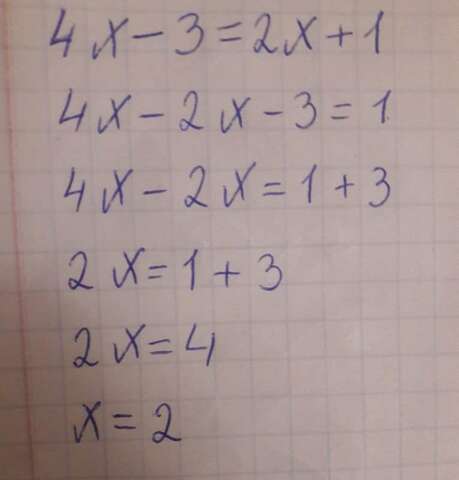 4x - 3 = 2x + 1
4x - 2x - 3 = 1
4x - 2x = 1 + 3
2x = 1 + 3
2x = 4
x = 2